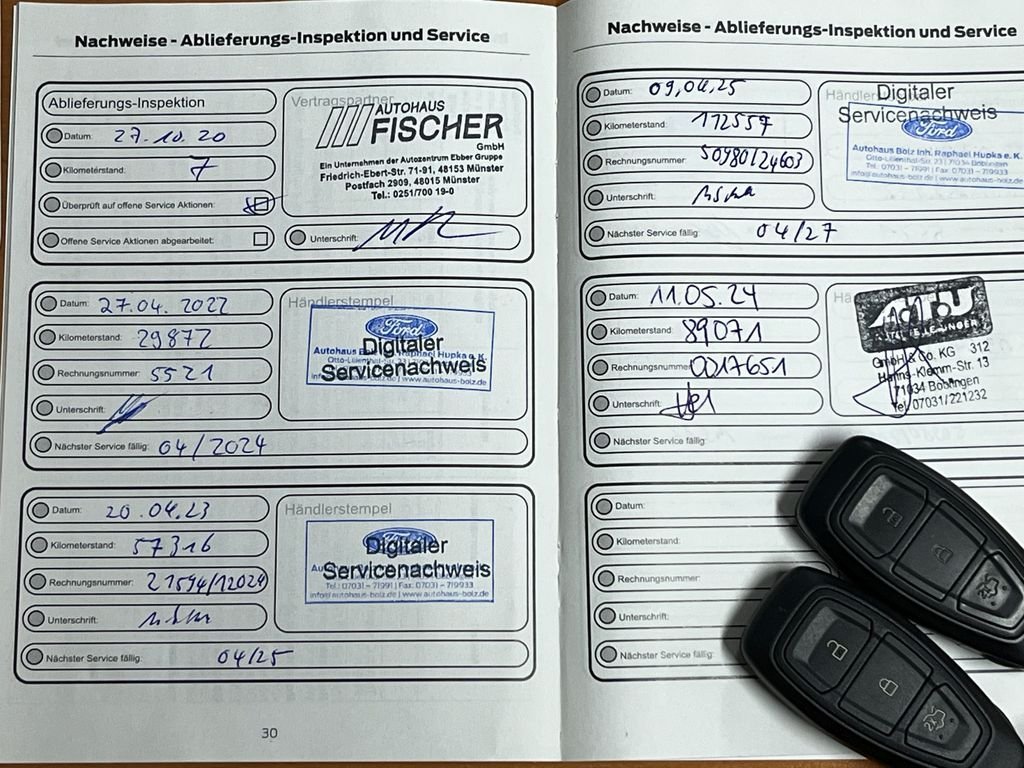 Nachweise - Ablieferungs-Inspektion und Service
Ablieferungs-Inspektion
Datum: 27.10.20
Kilometerstand: 7
Überprüft auf offene Service Aktionen:
Offene Service Aktionen abgearbeitet:
Vertragspartner
AUTOHAUS
FISCHER
GmbH
Ein Unternehmen der Autozentrum Ebber Gruppe
Friedrich-Ebert-Str. 71-91, 48153 Münster
Postfach 2909, 48015 Münster
Tel.: 0251/700 19-0
Unterschrift:
Datum: 27.04.2022
Kilometerstand: 29872
Rechnungsnummer: 5521
Unterschrift:
Nächster Service fällig: 04/2024
Händlerstempel
Ford
Digitaler
Servicenachweis
www.autohaus-bolz.de
Datum: 20.04.23
Kilometerstand: 57316
Rechnungsnummer: 21594/12024
Unterschrift:
Nächster Service fällig: 04/25
Händlerstempel
Digitaler
Servicenachweis
Tel.: 07031 - 71991 | Fax: 07031 - 719933
info@autohaus-bolz.de | www.autohaus-bolz.de
30
Nachweise - Ablieferungs-Inspektion und Service
Datum: 09.04.25
Kilometerstand: 112557
Rechnungsnummer: 50980/24603
Unterschrift:
Nächster Service fällig: 04/27
Digitaler
Servicenachweis
Ford
Autohaus Bolz Inh. Raphael Hupka e. K.
Otto-Lilienthal-Str. 23 | 71034 Böblingen
Tel.: 07031 - 71991 | Fax: 07031 - 719933
info@autohaus-bolz.de | www.autohaus-bolz.de
Datum: 11.05.24
Kilometerstand: 89071
Rechnungsnummer: 0017651
Unterschrift:
Nächster Service fällig:
GmbH & Co. KG 312
Hanns-Klemm-Str. 13
71034 Böblingen
Tel. 07031/221232
Datum:
Kilometerstand:
Rechnungsnummer:
Unterschrift:
Nächster Service fällig: